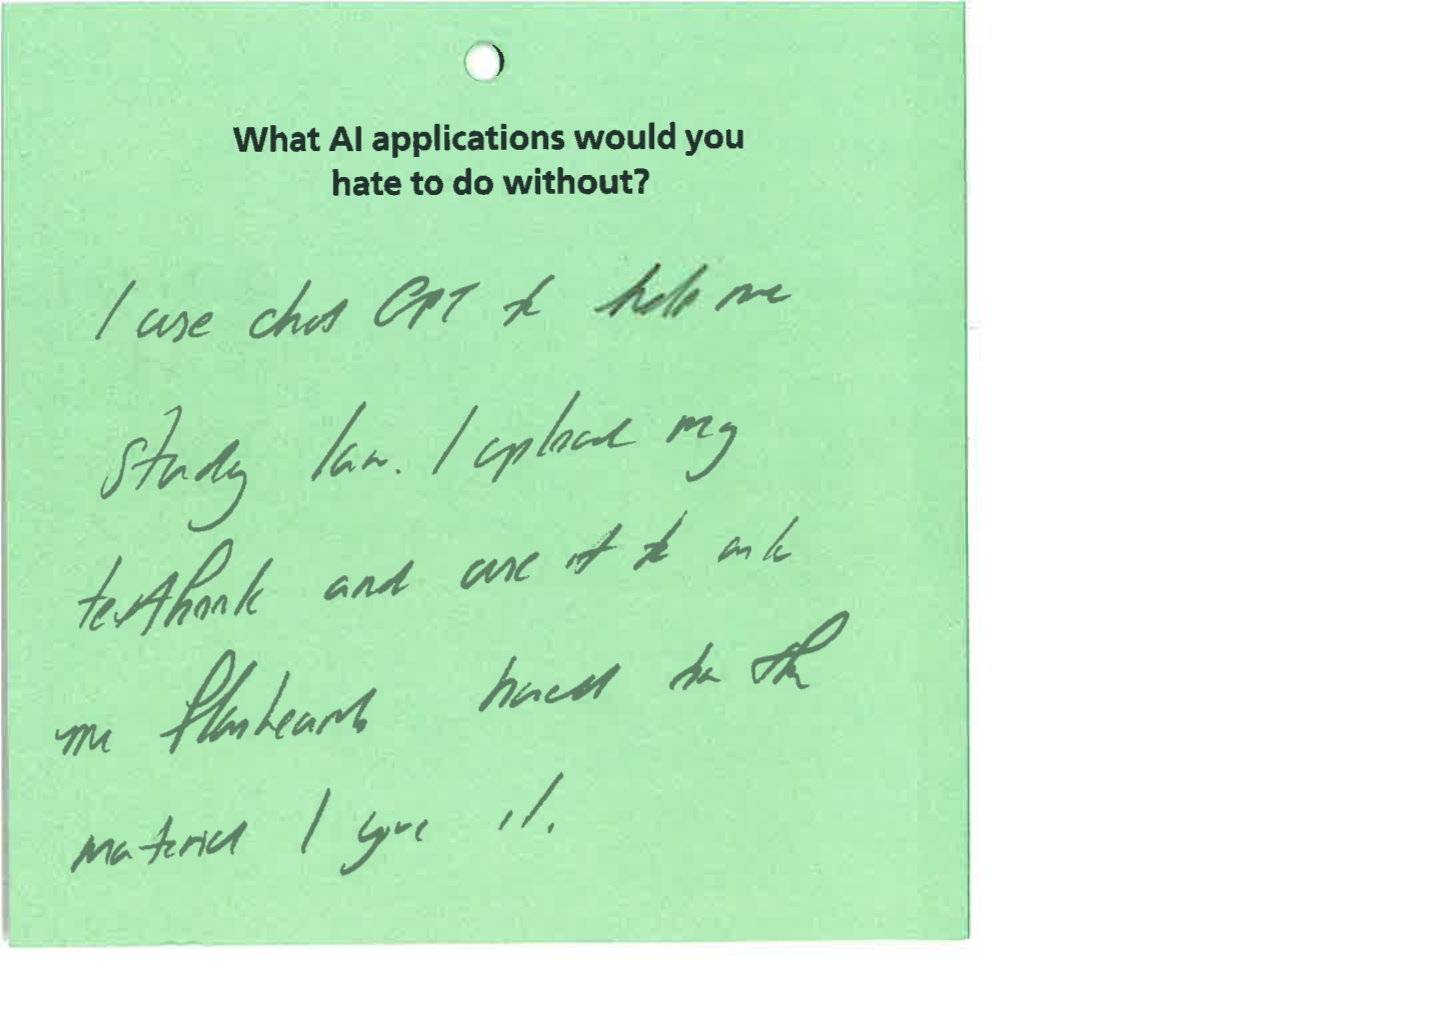 What AI applications would you
hate to do without?
I use chat GPT to help me
study law. I upload my
textbook and use it to ask
me flashcards based on the
material I give it.